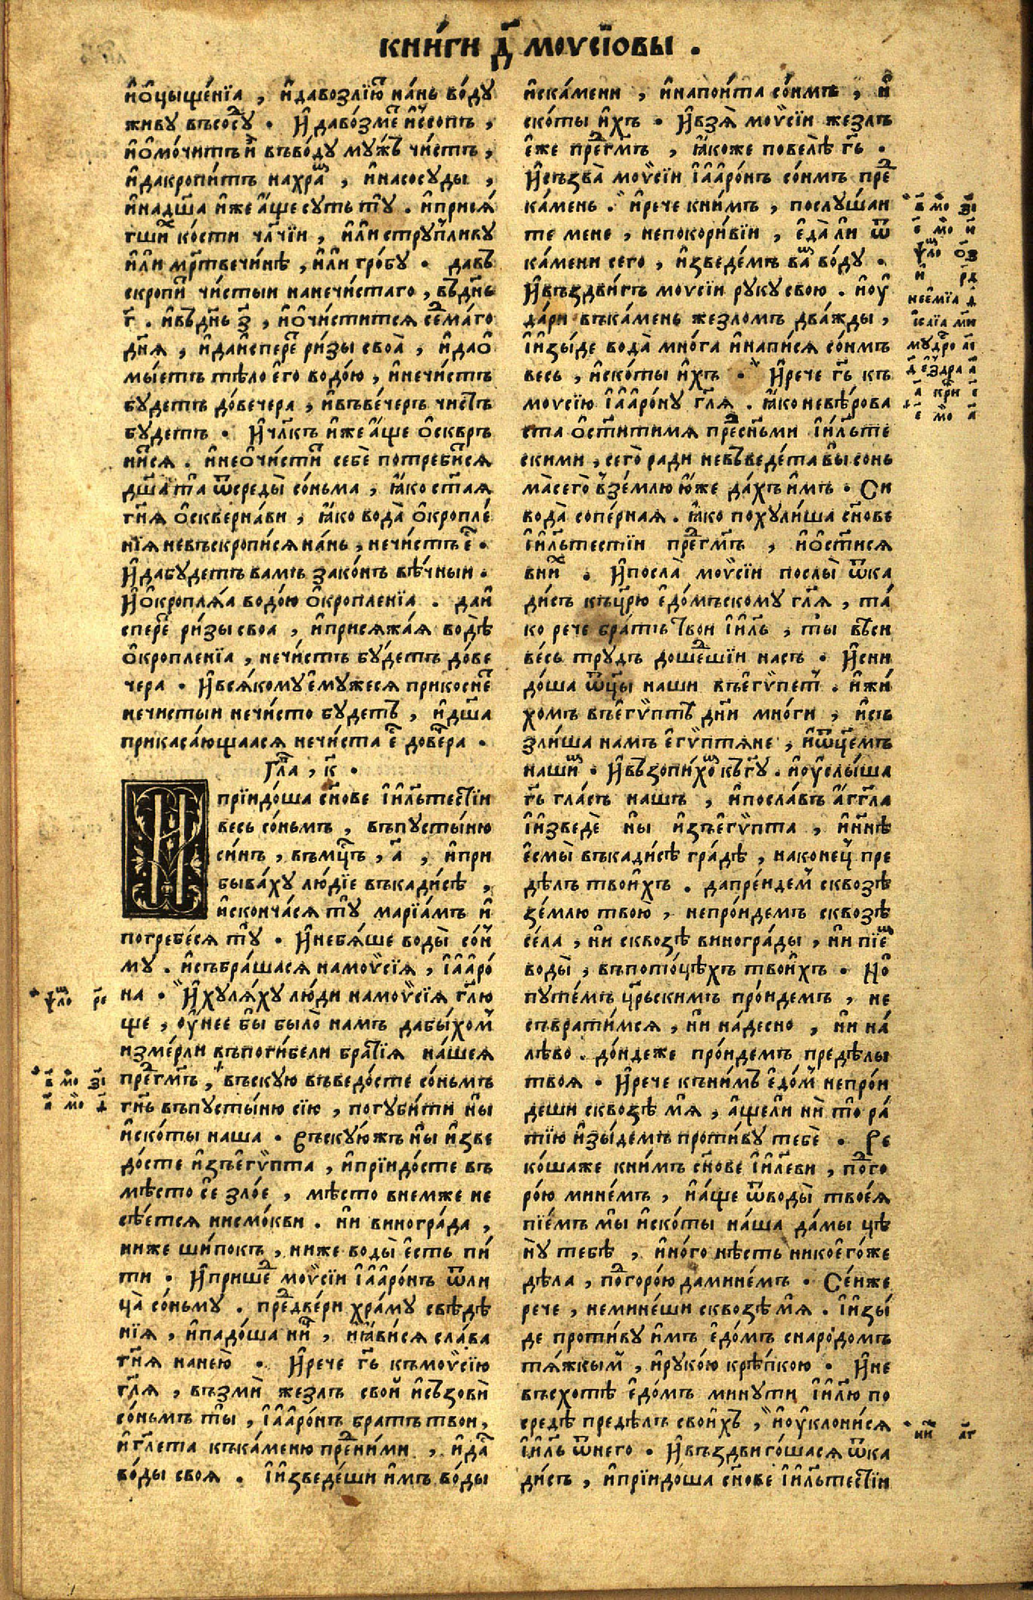 кни́ги д҃ моѵсіовы .
и҆ ѻ҆цыще́нїа , и҆ давозлїю҇ на́нь во́дꙋ
живꙋ въсосꙋ҇ . И҆ давозме҇ и҆ссопъ ,
и҆ ѻ҆мо́читъ и҆ въводꙋ мꙋ́жъ чи́стъ ,
и҆ дакропи́тъ нахра҇ , и҆ насосꙋды ,
и҆ надш҃а и҆же а҆́ще сꙋть тꙋ̀ . и҆ приса́
гшїи ко́сти чл҃чїи , и҆ли стрꙋпливꙋ
и҆ли мр҃твечи́нѣ , и҆ли гро́бꙋ . давъ
скропи҇ чи́стыи нанечи́стаго , въдн҃ь
г҃ . и҆ въдн҃ь з҃ , и҆ ѻ҆чи́стится се҇ма́го
дн҃я , и҆ даи҆спере҇ ри́зы своѧ̀ , и҆ даѻ҆
мы́етъ тѣ́ло е҆го водо́ю , и҆ нечи́стъ
бꙋдетъ до́вечера , и҆ въве́черъ чи҇стъ
бꙋ́детъ . И҆ чл҃къ и҆же а҆́ще ѻ҆сквръ
ни҇ся . и҆ неѻ҆чи́сти҇ себѐ потреби҇ся
дш҃а та̀ ѿсреды̀ со́ньма , ꙗ҆́ко ст҃ая
гн҃я ѻ҆скверна́ви , ꙗ҆́ко вода̀ ѻ҆кропле́
нїя невъскропися на́нь , нечи́стъ е҇ .
И҆ дабꙋдетъ вамъ зако́нъ вѣ́чныи .
И҆ ѻ҆кропля́а водо́ю ѻ҆кропленїа . даи҆
спере҇ ри́зы своа , и҆ присяжа́я водѣ
ѻ҆кропленїа , нечи́стъ бꙋ́детъ до́ве
чера . И҆ вся́комꙋ е҆мꙋжеся прикосне҇
нечистыи нечи́сто бꙋдетъ , и҆ дш҃а
прикаса́ющаася нечи́ста е҇ дове҇ра .
гл҃а , к҃ .
И҆ прїидо́ша сн҃ове і҆и҃льтестїи
весь со́ньмъ , въпꙋсты́ню
си́нъ , въмц҃ъ , а҃ , и҆ при
быва́хꙋ лю́дїе въкадисѣ ,
и҆ сконча́ся тꙋ̀ марїа́мъ и҆
погребе́ся тꙋ̀ . И҆ небя́ше воды̀ со́н̾
мꙋ . и҆ събра́шася намоѵ̈сїя , і҆ а҆аро́
на . И҆ хꙋля́хꙋ лю́ди намоѵ̈сїя гл҃ю
ще , ѹ҆́нее бы было̀ намъ дабы́хом̾
измерли въпоги́бели бра҇тїя на́шея
пре҇гм҃ъ , въскꙋю въведо́сте со́ньмъ
гн҃ь въпꙋсты́ню сїю , погꙋби́ти ны̀
и҆ ско́ты наша . Въскꙋ́южъ ны̀ и҆зве
до́сте и҆зъе҆гѵ́пта , и҆ прїидо́сте въ
мѣ́сто се́ зло́е , мѣсто внемже не
сѣ́ется нисмо́кви . ни виногра́да ,
ниже ши́покъ , ниже воды̀ е҆сть пи́
ти . И҆ прише҇ моѵ̈сїи і҆ а҆аро́нъ ѿли
ца̀ со́ньмꙋ . пре҇две́ри хра́мꙋ свѣдѣ
нїя , и҆ падо́ша ни҇ , и҆ ꙗ҆ви́ся сла́ва
гн҃я нане́ю . И҆ рече гь҃ къмоѵ̈сїю
гл҃я , възми̏ жезлъ свои̏ и҆ съзови̏
со́ньмъ ты̀ , і҆ а҆аро́нъ братъ твои ,
и҆ гл҃ета къка́меню пре҇ни́ми , и҆ да҇
во́ды своя . і҆ и҆зведе́ши и҆́мъ во́ды
и҆ ска́мени , и҆ напои́та со́имъ , и҆
ско́ты и҆́хъ . И҆ взя̀ моѵ̈сїи жезлъ
е҆́же пре҇гм҃ъ , ꙗ҆́коже повелѣ̀ гь҃ .
И҆ съзва̀ моѵ̈сїи і҆ а҆аро́нъ со́имъ пре҇
ка́мень . и҆ рече кни́мъ , послꙋ́шаи
те мене , непокори́вїи , е҆да̀ ли ѿ
ка́мени сего , и҆зведе́мъ ва҇ во́дꙋ .
И҆ въздви́гъ моѵ̈сїи рꙋкꙋ свою . и҆ ѹ҆
да́ри въка́мень жезломъ два́жды ,
і҆ и҆зы́де вода̀ мно́га и҆ напи́ся со́имъ
весь , и҆ ско́ты и҆́хъ . И҆ рече гь҃ къ
моѵсїю і҆ а҆аро́нꙋ гл҃я . ꙗ҆́ко невѣ́рова
ста ѻ҆ст҃и́тимя пре҇сн҃ьми і҆и҃льте
скими , сего̀ ради невъведе́та вы̀ сонь
ма̀ сего̀ в̾зе́млю ю҆́же да́хъ и҆́мъ . Си
вода̀ сопе́рная . ꙗ҆́ко похꙋли́ша сн҃ове
і҆и҃льтестїи пре҇гм҃ъ , и҆ ѻ҆ст҃ися
вни҇ . И҆ посла̀ моѵ̈сїи послы̀ ѿка
ди́съ къцр҃ю е҆до́мъскомꙋ гл҃я , та́
ко рече бра́тъ твои і҆и҃ль , ты̀ вѣси
ве́сь трꙋдъ доше҇шїи насъ . И҆ сни
до́ша ѿц҃ы наши въе҆гѵ́пет̾ . и҆ жи́
хомъ въе҆гѵ́птѣ дн҃и мно́ги , и҆ ѕъ
зли́ша намъ е҆гѵ́птяне , и҆ ѿц҃емъ
наши҇ . И҆ възопи́хо҇ къгу҃ . и҆ ѹ҆слы́ша
гь҃ гла́съ нашъ , и҆ посла́въ а҆́гг҃ла
і҆ и҆зведѐ ны̀ и҆зъе҆гѵ́пта , и҆ нн҃ѣ
е҆смы̀ въкади́сѣ гра́дѣ , наконец̾ пре
дѣлъ твои́хъ . дапре́идем̾ сквозѣ
зе́млю твою̀ , непро́идемъ сквозѣ
се́ла , ни сквозѣ виногра́ды , ни пїе҇
воды̀ , въпото́цѣхъ твои́хъ . Но̀
пꙋте́мъ цр҃ьскимъ про́идемъ , не
съврати́мся , ни на́десно , ни на́
лѣво . до́ндеже про́идемъ предѣлы
твоя . И҆ рече кни́мъ е҆до́м̾ непро́и
деши сквозѣ мя̀ , а҆́щели ни̏ то̀ ра́
тїю и҆зы́демъ проти́вꙋ тебѐ . Ре
ко́шаже кни́мъ сн҃ове і҆и҃леви , по҇го
ро́ю мине́мъ , и҆ а҆́ще ѿводы̀ твоея́
пїе́мъ мы̀ и҆ ско́ты на́ша да́мы цѣ
нꙋ̀ тебѣ , и҆но́го нѣсть нико́его́же
дѣ́ла , по҇горо́ю дамине́мъ . Се́иже
рече , немине́ши сквозѣ мя̀ . і҆ и҆зы́
де проти́вꙋ и҆́мъ е҆до́мъ снаро́домъ
тя́жкым̾ , и҆ рꙋко́ю крѣ́пкою . И҆ не
въсхотѣ̀ е҆до́мъ минꙋти і҆и҃лю по
средѣ̀ предѣлъ свои́хъ , и҆ ѹ҆клони́ся
і҆и҃ль ѿнего . И҆ въздвиго́шася ѿка
ди́съ , и҆ прїидо́ша сн҃ове і҆и҃льтестїи